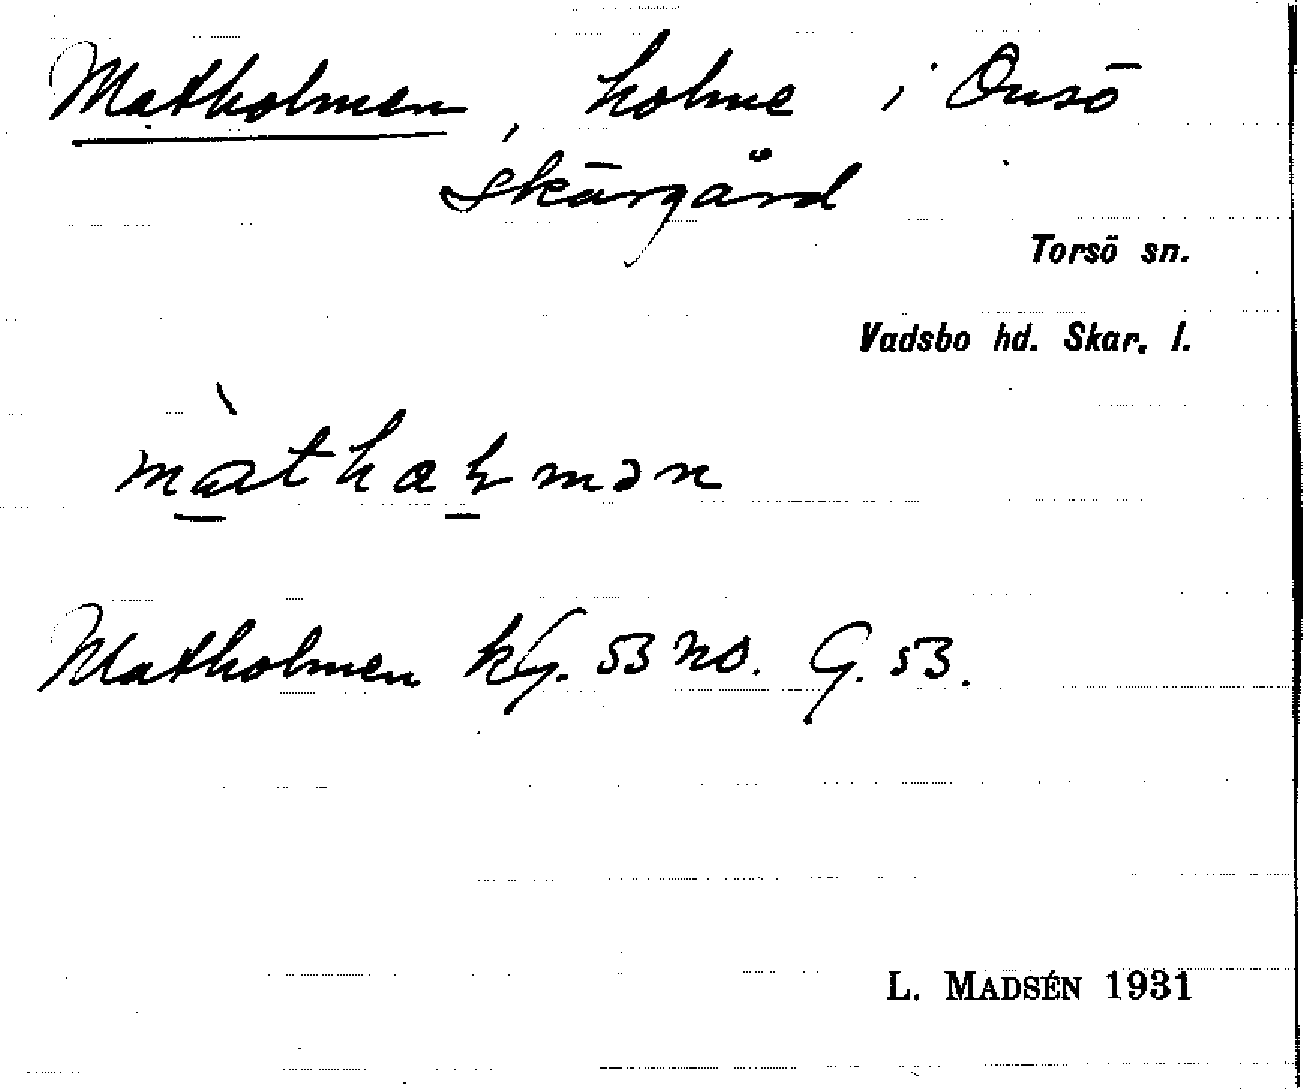 Matholmen, holme i Onsö
skärgård
Torsö sn.
Vadsbo hd. Skar. l.
màthaɽmən
Matholmen kg. 53 no. G. 53.
L. MADSÉN 1931